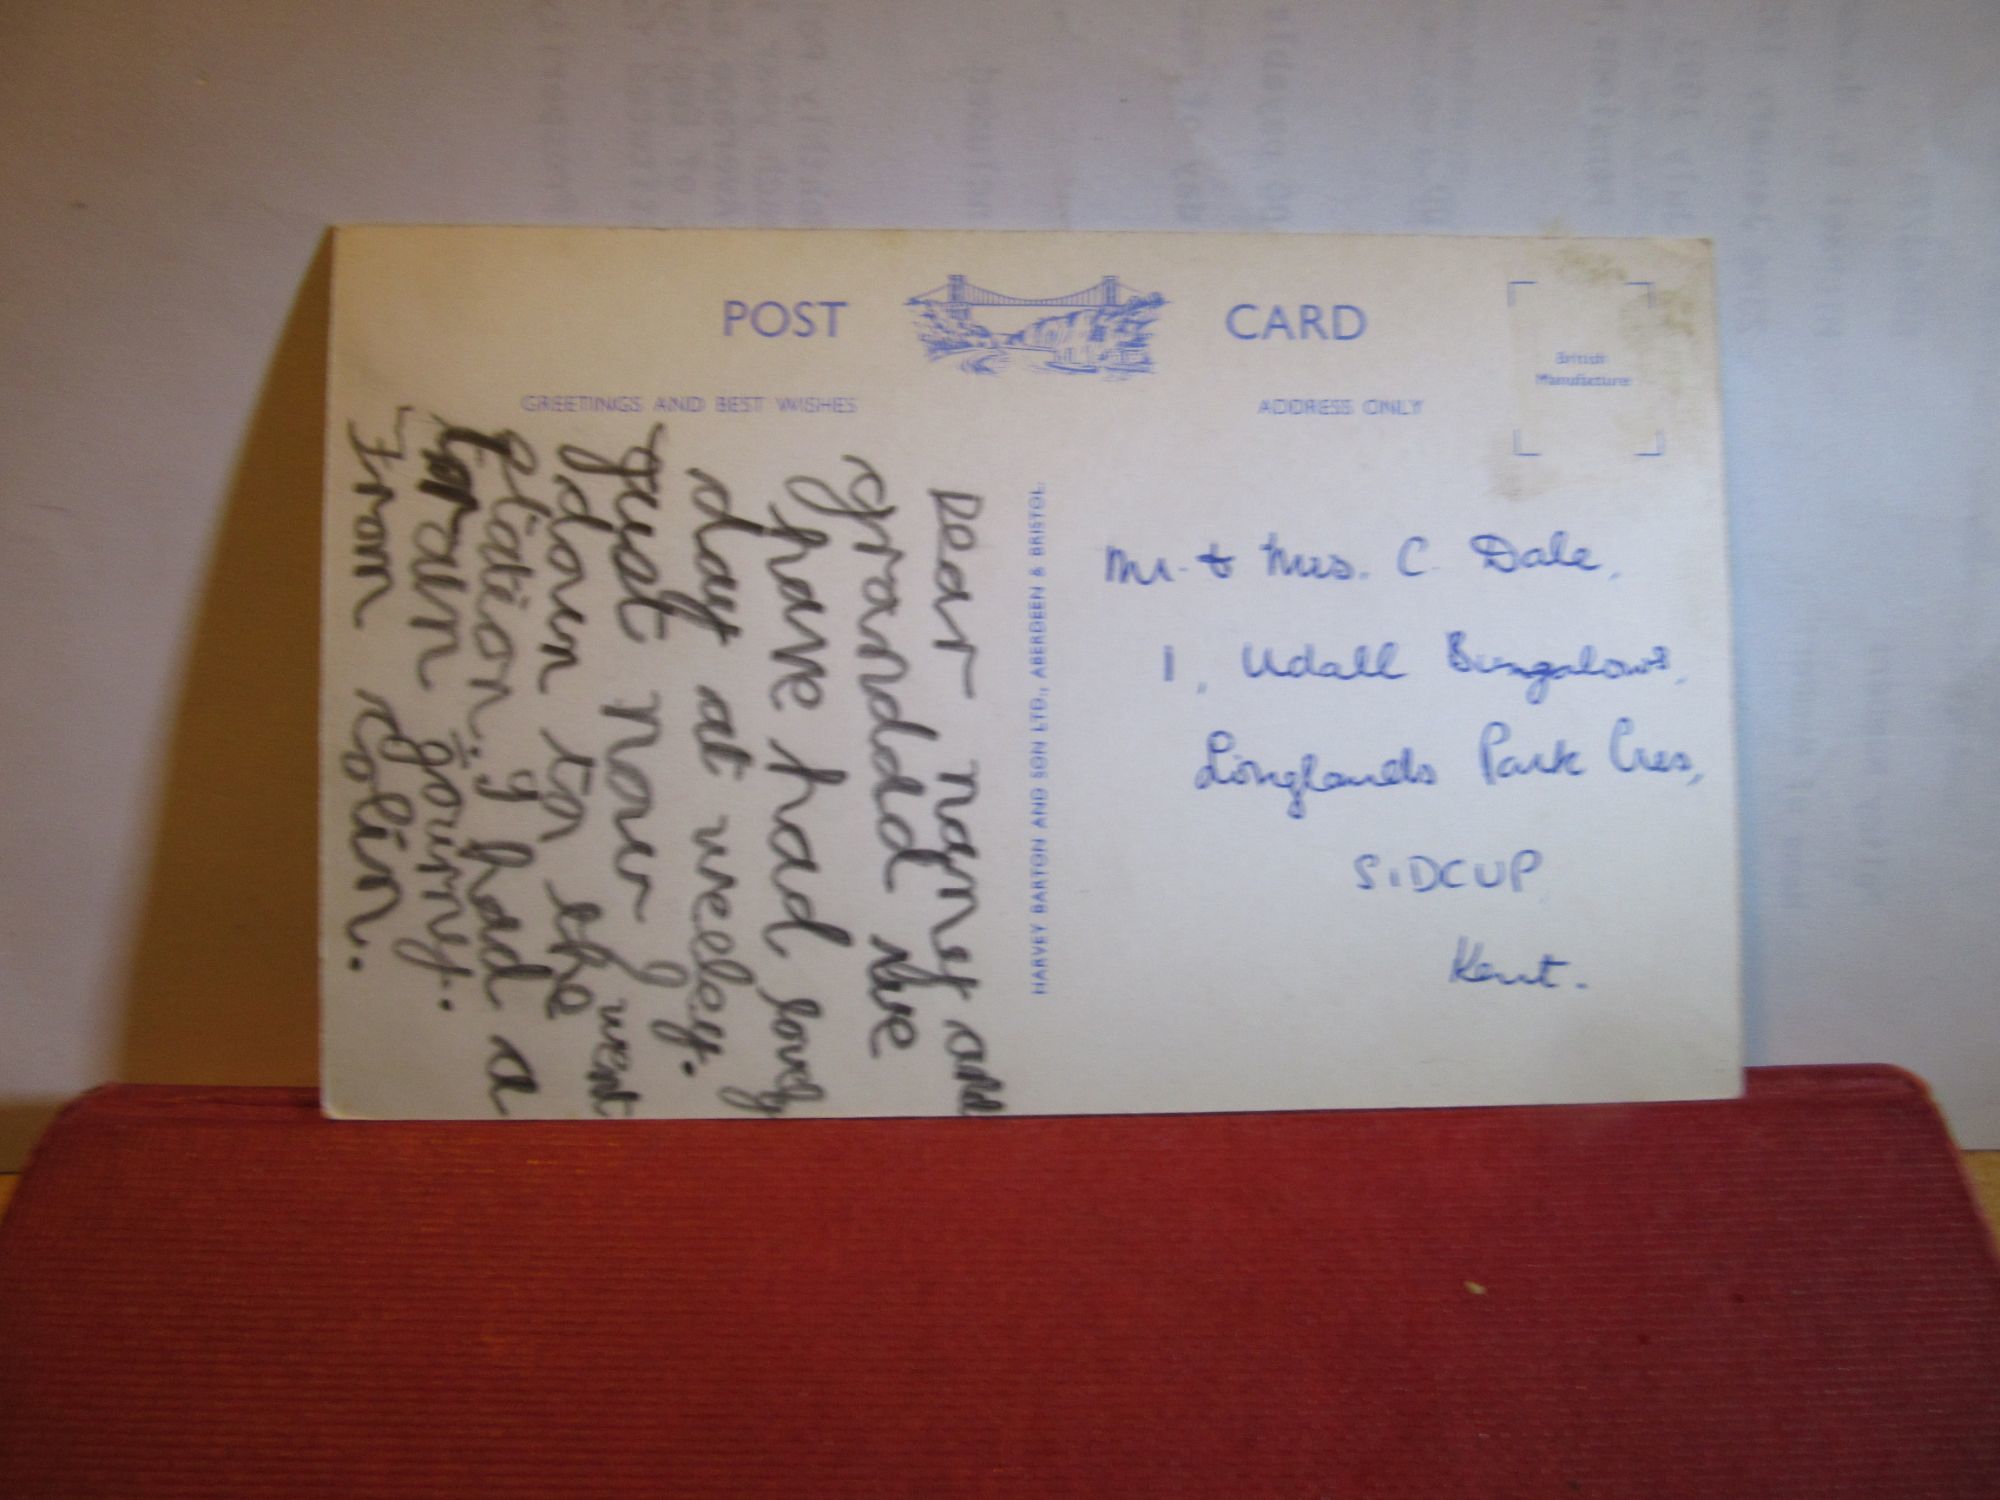 POST CARD
GREETINGS AND BEST WISHES
ADDRESS ONLY
British
Manufacture
Dear nayney and
granddad we
have had lovely
day at weeley.
just now I went
down to the
station. I had a
train journey.
From Colin.
HARVEY BARTON AND SON LTD., ABERDEEN & BRISTOL.
Mr. & Mrs. C Dale,
1, Udall Bungalows,
Longlands Park Cres,
SIDCUP
Kent.